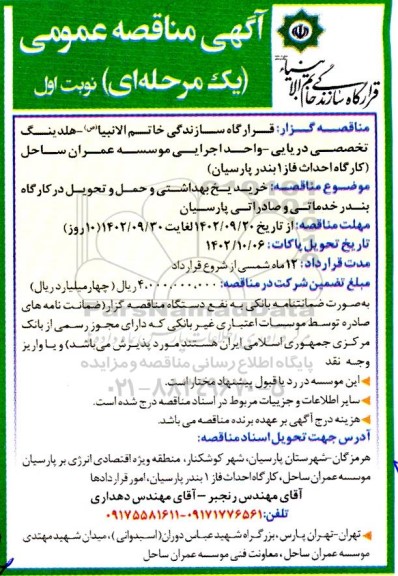 آگهی مناقصه عمومی
(یک مرحله‌ای) نوبت اول
قرارگاه سازندگی خاتم الانبیاء
مناقصه گزار: قرارگاه سازندگی خاتم الانبیا(ص)-هلدینگ
تخصصی دریایی-واحد اجرایی موسسه عمران ساحل
(کارگاه احداث فاز۱ بندر پارسیان)
موضوع مناقصه: خرید یخ بهداشتی و حمل و تحویل در کارگاه
بندر خدماتی و صادراتی پارسیان
مهلت مناقصه: از تاریخ ۱۴۰۲/۰۹/۲۰ لغایت ۱۴۰۲/۰۹/۳۰ (۱۰ روز)
تاریخ تحویل پاکات: ۱۴۰۲/۱۰/۰۶
مدت قرارداد: ۱۲ ماه شمسی از شروع قرارداد
مبلغ تضمین شرکت در مناقصه: ۴.۰۰۰.۰۰۰.۰۰۰ ریال (چهار میلیارد ریال)
به‌صورت ضمانتنامه بانکی به نفع دستگاه مناقصه گزار (ضمانت نامه های
صادره توسط موسسات اعتباری غیر بانکی که دارای مجوز رسمی از بانک
مرکزی جمهوری اسلامی ایران هستند مورد پذیرش می‌باشد) و یا واریز
وجه نقد
این موسسه در رد یا قبول پیشنهاد مختار است.
سایر اطلاعات و جزییات مربوط در اسناد مناقصه درج شده است.
هزینه درج آگهی بر عهده برنده مناقصه می باشد.
آدرس جهت تحویل اسناد مناقصه:
هرمزگان-شهرستان پارسیان، شهر کوشکنار، منطقه ویژه اقتصادی انرژی بر پارسیان
موسسه عمران ساحل، کارگاه احداث فاز ۱ بندر پارسیان، امور قراردادها
آقای مهندس رنجبر – آقای مهندس دهداری
تلفن: ۰۹۱۷۱۷۷۶۵۶۱-۰۹۱۷۵۵۸۱۶۱۱
تهران-تهران پارس، بزرگراه شهید عباس دوران (استیدوانی)، میدان شهید مهتدی
موسسه عمران ساحل، معاونت فنی موسسه عمران ساحل
ParsNamadData
پایگاه اطلاع رسانی مناقصه و مزایده